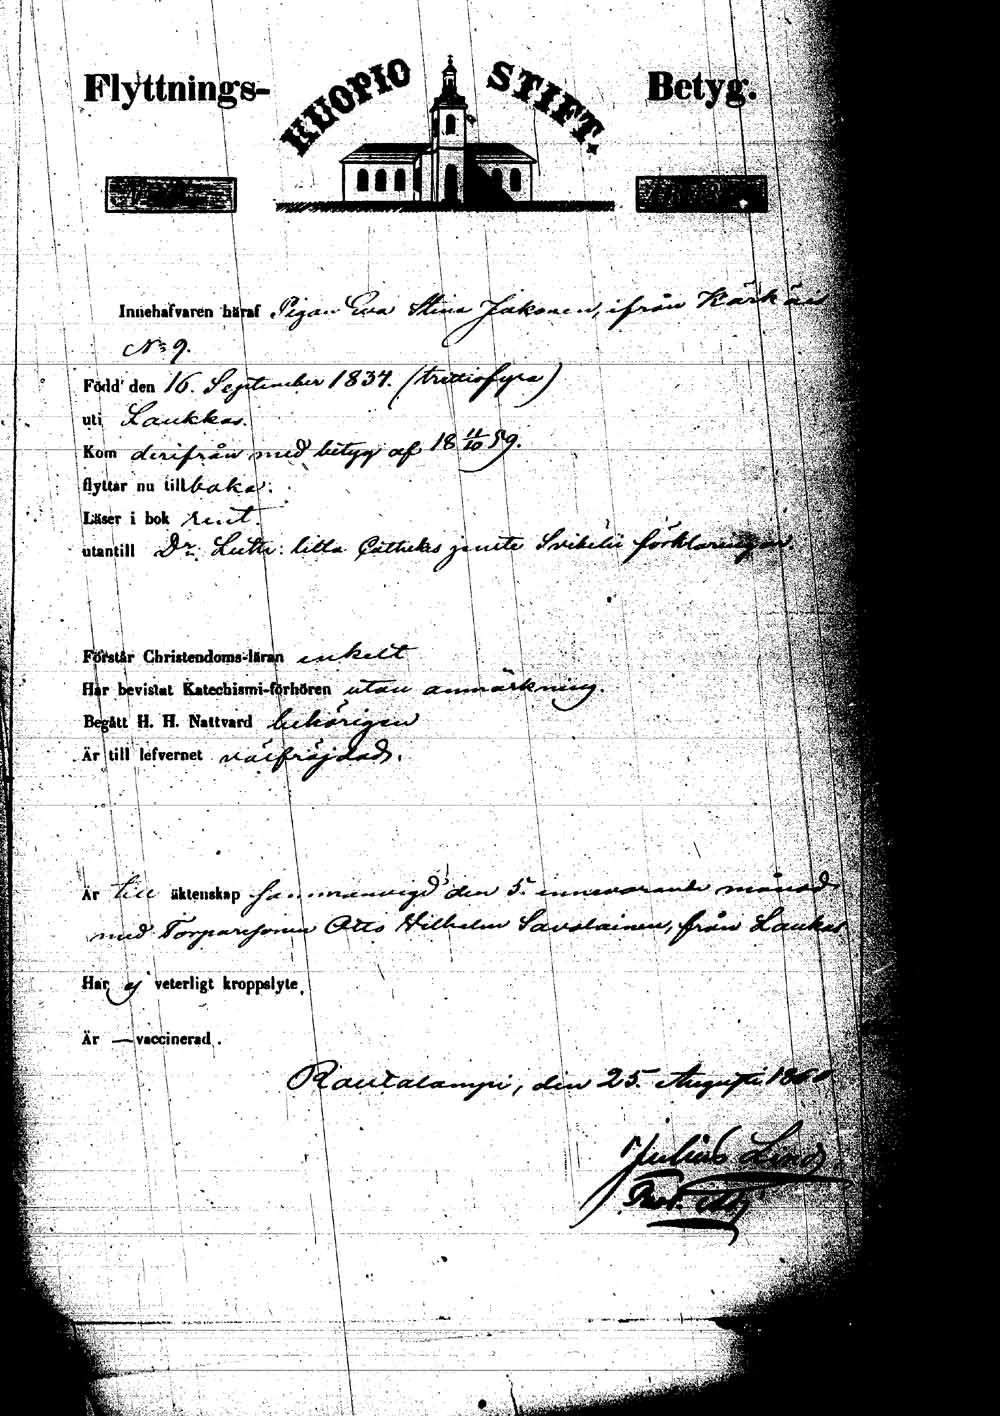 Flyttnings- KUOPIO STIFT. Betyg.
Innehafvaren häraf Pigan Eva Stina Jakonen, ifrån Kärkäis
No 9.
Född den 16. September 1834. (trettiofyra)
uti Laukkas.
Kom derifrån med betyg af 18 11/10 59.
flyttar nu till baka.
Läser i bok rent.
utantill Dr. Luth: lilla Cathekes jemte Svibelii förklaringar.
Förstår Christendoms-läran enkelt
Har bevistat Katechismi-förhören utan anmärkning.
Begått H. H. Nattvard behörigen
Är till lefvernet välfräjdad.
Är till äktenskap sammanvigd den 5. innevarande månad
med Torparesonen Otto Wilhelm Savolainen, från Laukas
Har ej veterligt kroppslyte.
Är — vaccinerad.
Rautalampi, den 25. Augusti 1860
Julius Lind